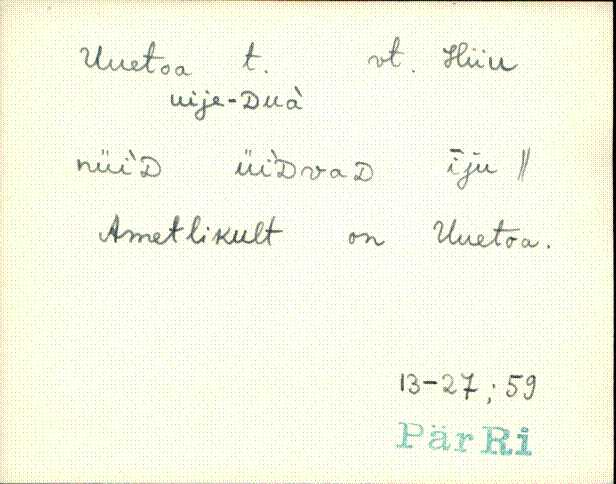 Uuetoa t. vt. Hiiu
uije-Duà
nüìD üìDvaD īju ||
Ametlikult on Uuetoa.
13-27; 59
PärRi